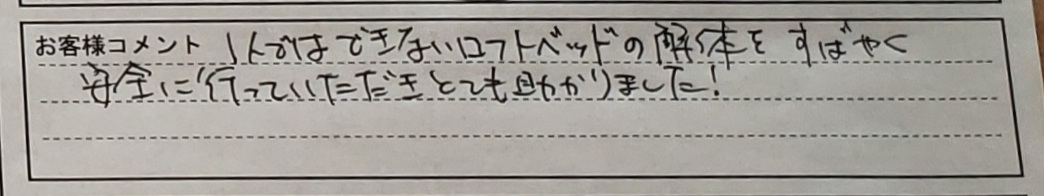 お客様コメント 1人ではできないロフトベッドの解体を すばやく
安全に行っていただきとても助かりました!